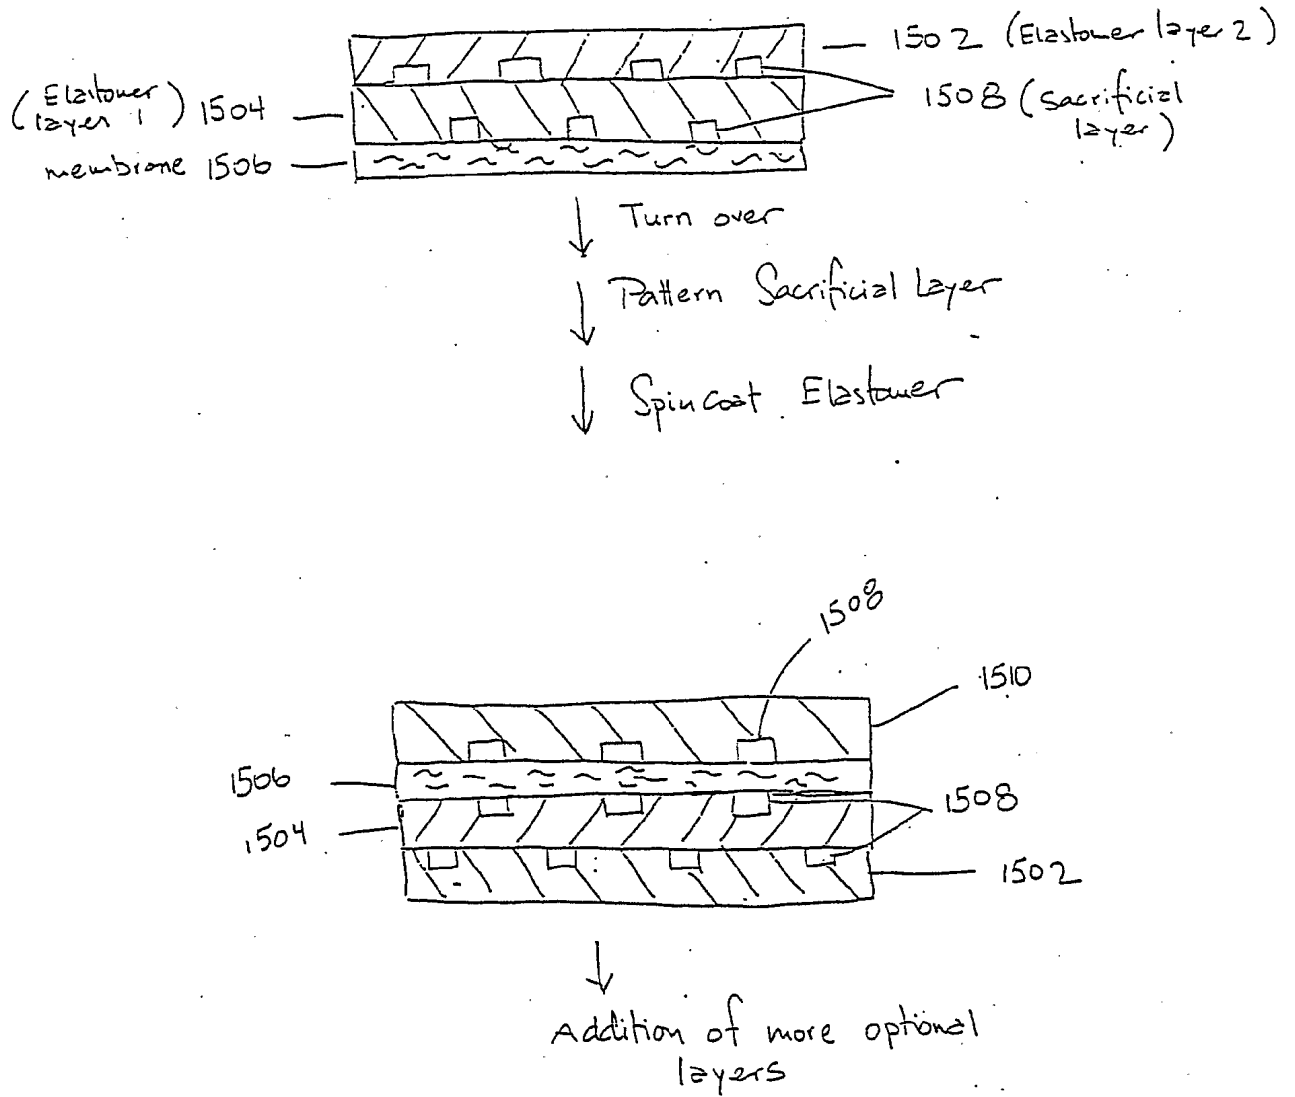 1502 (Elastomer layer 2)
(Elastomer layer 1) 1504
1508 (sacrificial
layer)
membrane 1506
Turn over
Pattern Sacrificial Layer
Spincoat Elastomer
1508
1510
1506
1508
1504
1502
Addition of more optional
layers